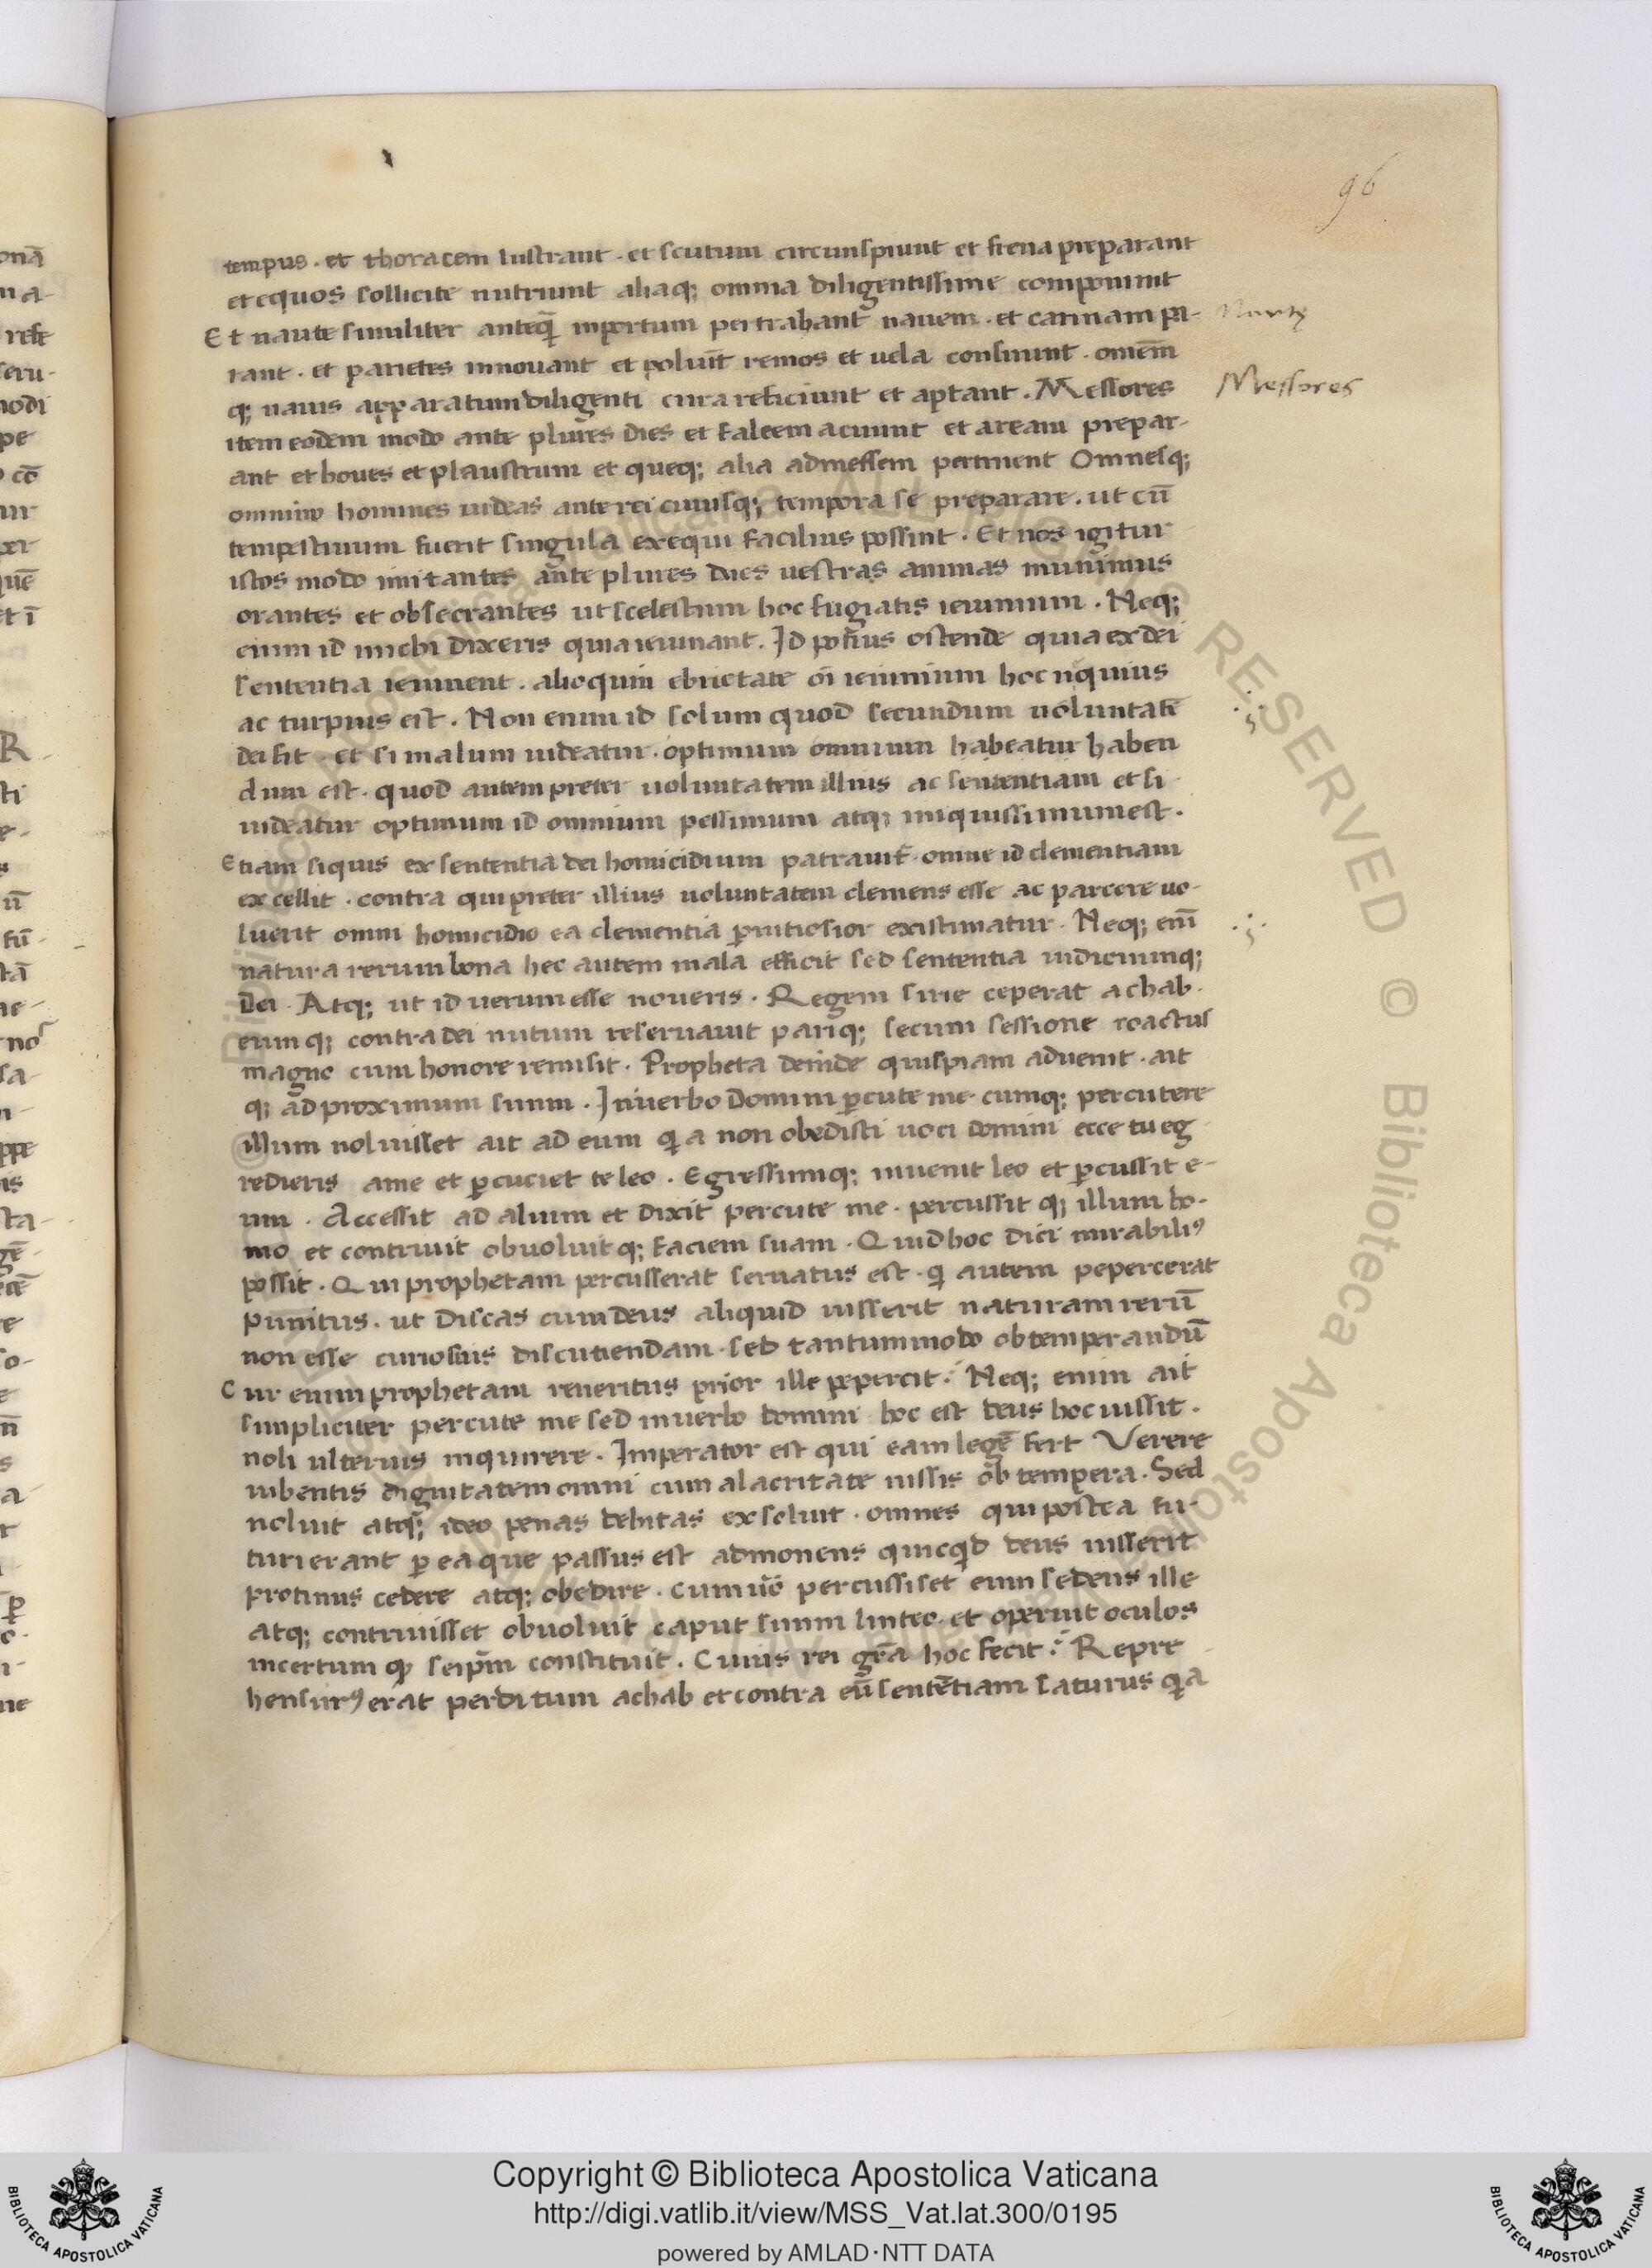 96
tempus. et thoracem lustrant. et scutum circunspiunt et frena preparant
et equos sollicite nutriunt aliaq; omnia diligentissime componunt
Et naute similiter anteq̄ inportum pertrahant nauem. et carinam pa-
Naute
rant. et parietes innouant et poliūt remos et uela consuunt. omēm
q; nauis apparatum diligenti cura reficiunt et aptant. Messores
Messores
item eodem modo ante plures dies et falcem acuunt et aream prepar-
ant et boues et plaustrum et queq; alia ad messem pertinent Omnesq;
omnino homines uideas ante rei cuiusq; tempora se preparare. ut cū
tempestiuum fuerit singula exequi facilius possint. Et nos igitur
istos modo imitantes ante plures dies uestras animas munimus
orantes et obsecrantes ut scelestum hoc fugiatis ieiunium. Neq;
enim id michi dixeris quia ieiunant. Id potius ostende quia ex dei
sententia ieiunent. alioquin ebrietate oī ieiunium hoc nquius
ac turpius est. Non enim id solum quod secundum uoluntatē
dei fit et si malum uideatur. optimum omnium habeatur haben
dum est. quod autem preter uoluntatem illius ac sententiam et si
uideatur optimum id omnium pessimum atq; iniquissimum est.
Etiam siquis ex sententia dei homicidium patrauit. omne id clementiam
excellit. contra qui preter illius uoluntatem clemens esse ac parcere uo-
luerit omni homicidio ea clementia p̱nitiosior existimatur. Neq; enī
natura rerum bona hec autem mala efficit sed sententia iudiciumq;
Dei. Atq; ut id uerum esse noueris. Regem sirie ceperat achab.
eumq; contra dei nutum reseruauit pariq; secum sessione coactus
magno cum honore remisit. Propheta deinde quispiam aduenit. ait
q; ad proximum suum. In uerbo Domini p̱cute me. cumq; percutere
illum noluisset ait ad eum q̄a non obedisti uoci domini ecce tu eg
redieris ame et p̱cuciet te leo. Egressumq; inuenit leo et p̱cussit e-
um. Accessit ad alium et dixit percute me. percussit q; illum ho-
mo et contriuit obuoluit q; faciem suam. Quid hoc dici mirabiliꝰ
possit. Qui prophetam percusserat seruatus est. q̄ autem pepercerat
punitus. ut Discas cum deus aliquid iusserit naturam rerū
non esse curiosius discutiendam. sed tantummodo obtemperandū
Cur enim prophetam reueritus prior ille pepercit? Neq; enim ait
simpliciter percute me sed in uerbo domini hoc est deus hoc iussit.
noli ulterius inquirere. Imperator est qui eam legē fert Verere
iubentis dignitatem omni cum alacritate iussis obtempera. Sed
noluit atq; ideo penas debitas exsoluit. omnes qui postea fu-
turi erant p̱ ea que passus est admonens quicq̄d deus iusserit
protinus cedere atq; obedire. Cum uō percussiset eum sedens ille
atq; contriuisset obuoluit caput suum linteo. et operuit oculos
incertum q̱ seip̄m constituit. Cuius rei grā hoc fecit? Repre
hensurꝰ erat perditum achab et contra eū sententiam laturus q̄a
Copyright © Biblioteca Apostolica Vaticana
http://digi.vatlib.it/view/MSS_Vat.lat.300/0195
powered by AMLAD·NTT DATA
BIBLIOTECA APOSTOLICA VATICANA
BIBLIOTECA APOSTOLICA VATICANA